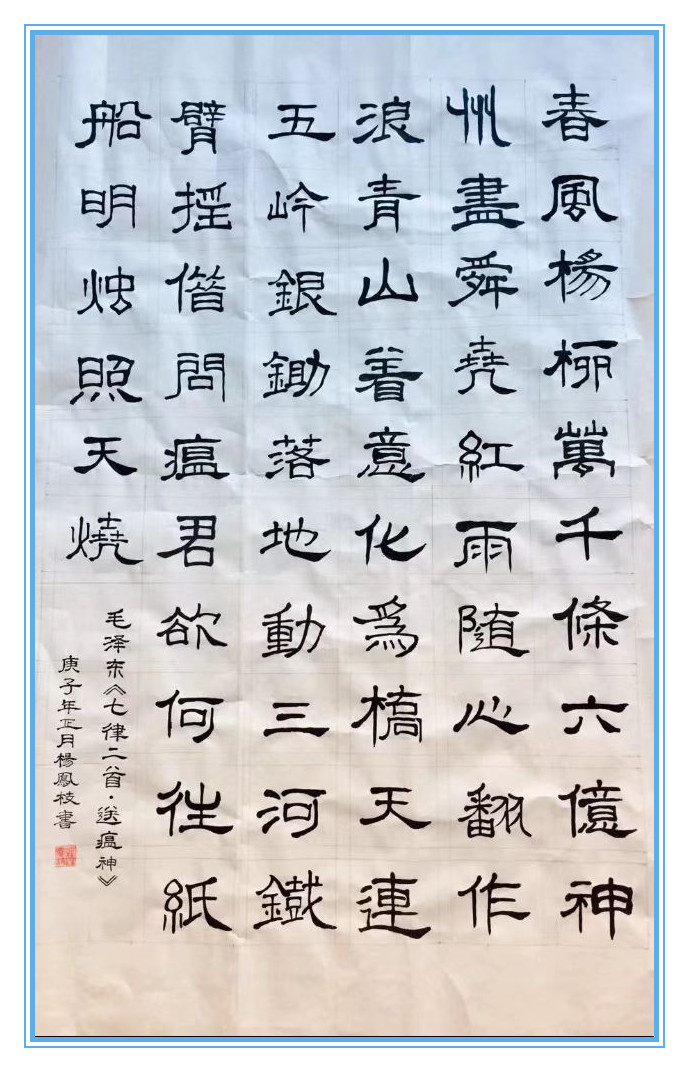 春風楊柳萬千條六億神
州盡舜堯紅雨隨心翻作
浪青山着意化為橋天連
五岭銀鋤落地動三河鐵
臂摇借問瘟君欲何往紙
船明烛照天燒
毛泽东《七律二首·送瘟神》
庚子年正月楊鳳枝書